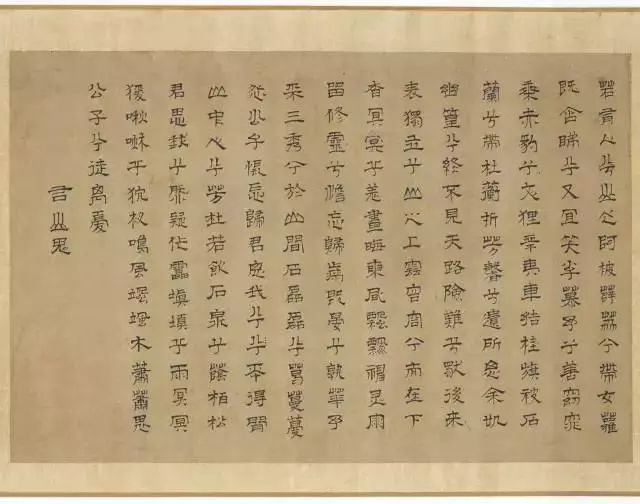 若有人兮山之阿被薜荔兮帶女蘿
既含睇兮又宜笑子慕予兮善窈窕
乘赤豹兮文狸辛夷車結桂旗被石
蘭兮帶杜蘅折芳馨兮遺所思余処
幽篁兮終不見天路險難兮獨後來
表獨立兮山之上雲容容兮而在下
杳冥冥兮羌晝晦東風飄飄神靈雨
留修靈兮憺忘歸歲既晏兮孰華予
采三秀兮於山間石磊磊兮葛蔓蔓
怨公子悵忘歸君思我兮兮不得閒
山中人兮芳杜若飲石泉兮蔭柏松
君思我兮然疑作靁填填兮雨冥冥
猨啾啾兮狖夜鳴風颯颯木蕭蕭思
公子兮徒離憂
右山鬼